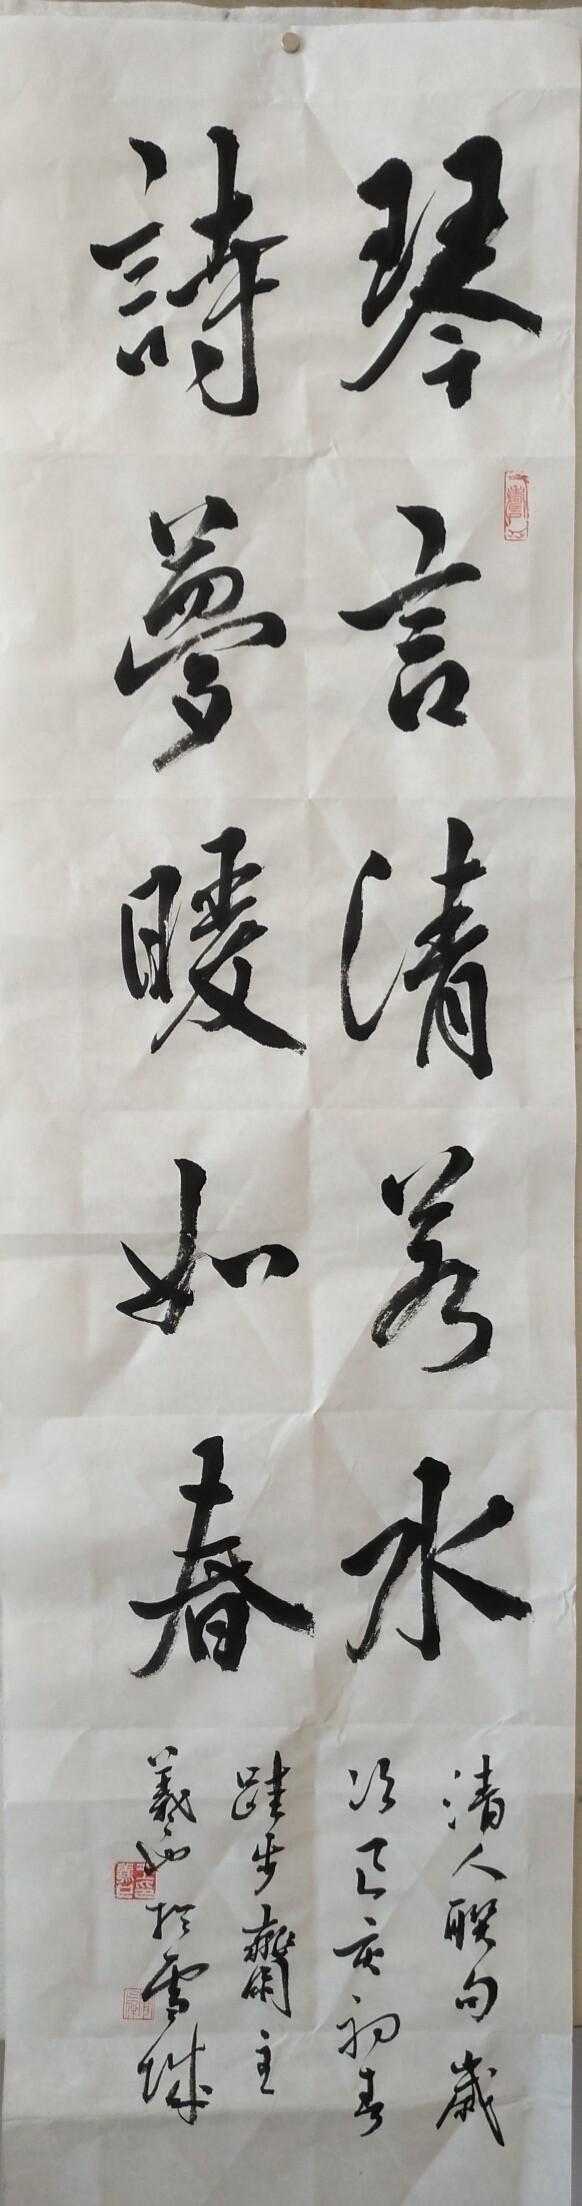 琴言清若水
詩夢暖如春
清人聯句歲
次己亥初春
跬步齋主
義山於雪城